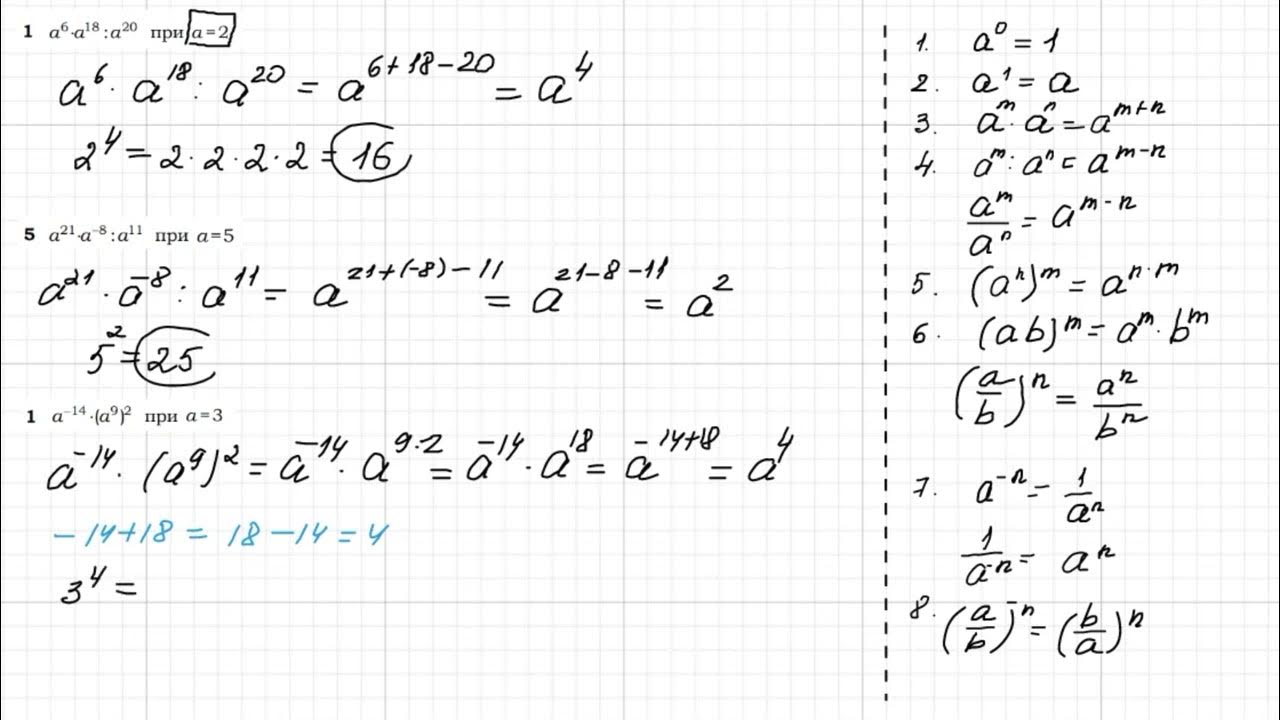 1 a⁶·a¹⁸:a²⁰ при a=2
a⁶ · a¹⁸ : a²⁰ = a⁶⁺¹⁸⁻²⁰ = a⁴
2⁴ = 2 · 2 · 2 · 2 = 16
5 a²¹·a⁻⁸:a¹¹ при a=5
a²¹ · a⁻⁸ : a¹¹ = a²¹⁺⁽⁻⁸⁾⁻¹¹ = a²¹⁻⁸⁻¹¹ = a²
5² = 25
1 a⁻¹⁴·(a⁹)² при a=3
a⁻¹⁴ · (a⁹)² = a⁻¹⁴ · a^(9·2) = a⁻¹⁴ · a¹⁸ = a⁻¹⁴⁺¹⁸ = a⁴
-14+18 = 18-14 = 4
3⁴ =
1. a⁰ = 1
2. a¹ = a
3. aᵐ · aⁿ = aᵐ⁺ⁿ
4. aᵐ : aⁿ = aᵐ⁻ⁿ
aᵐ/aⁿ = aᵐ⁻ⁿ
5. (aⁿ)ᵐ = a^(n·m)
6. (ab)ᵐ = aᵐ · bᵐ
(a/b)ⁿ = aⁿ/bⁿ
7. a⁻ⁿ = 1/aⁿ
1/a⁻ⁿ = aⁿ
8. (a/b)⁻ⁿ = (b/a)ⁿ